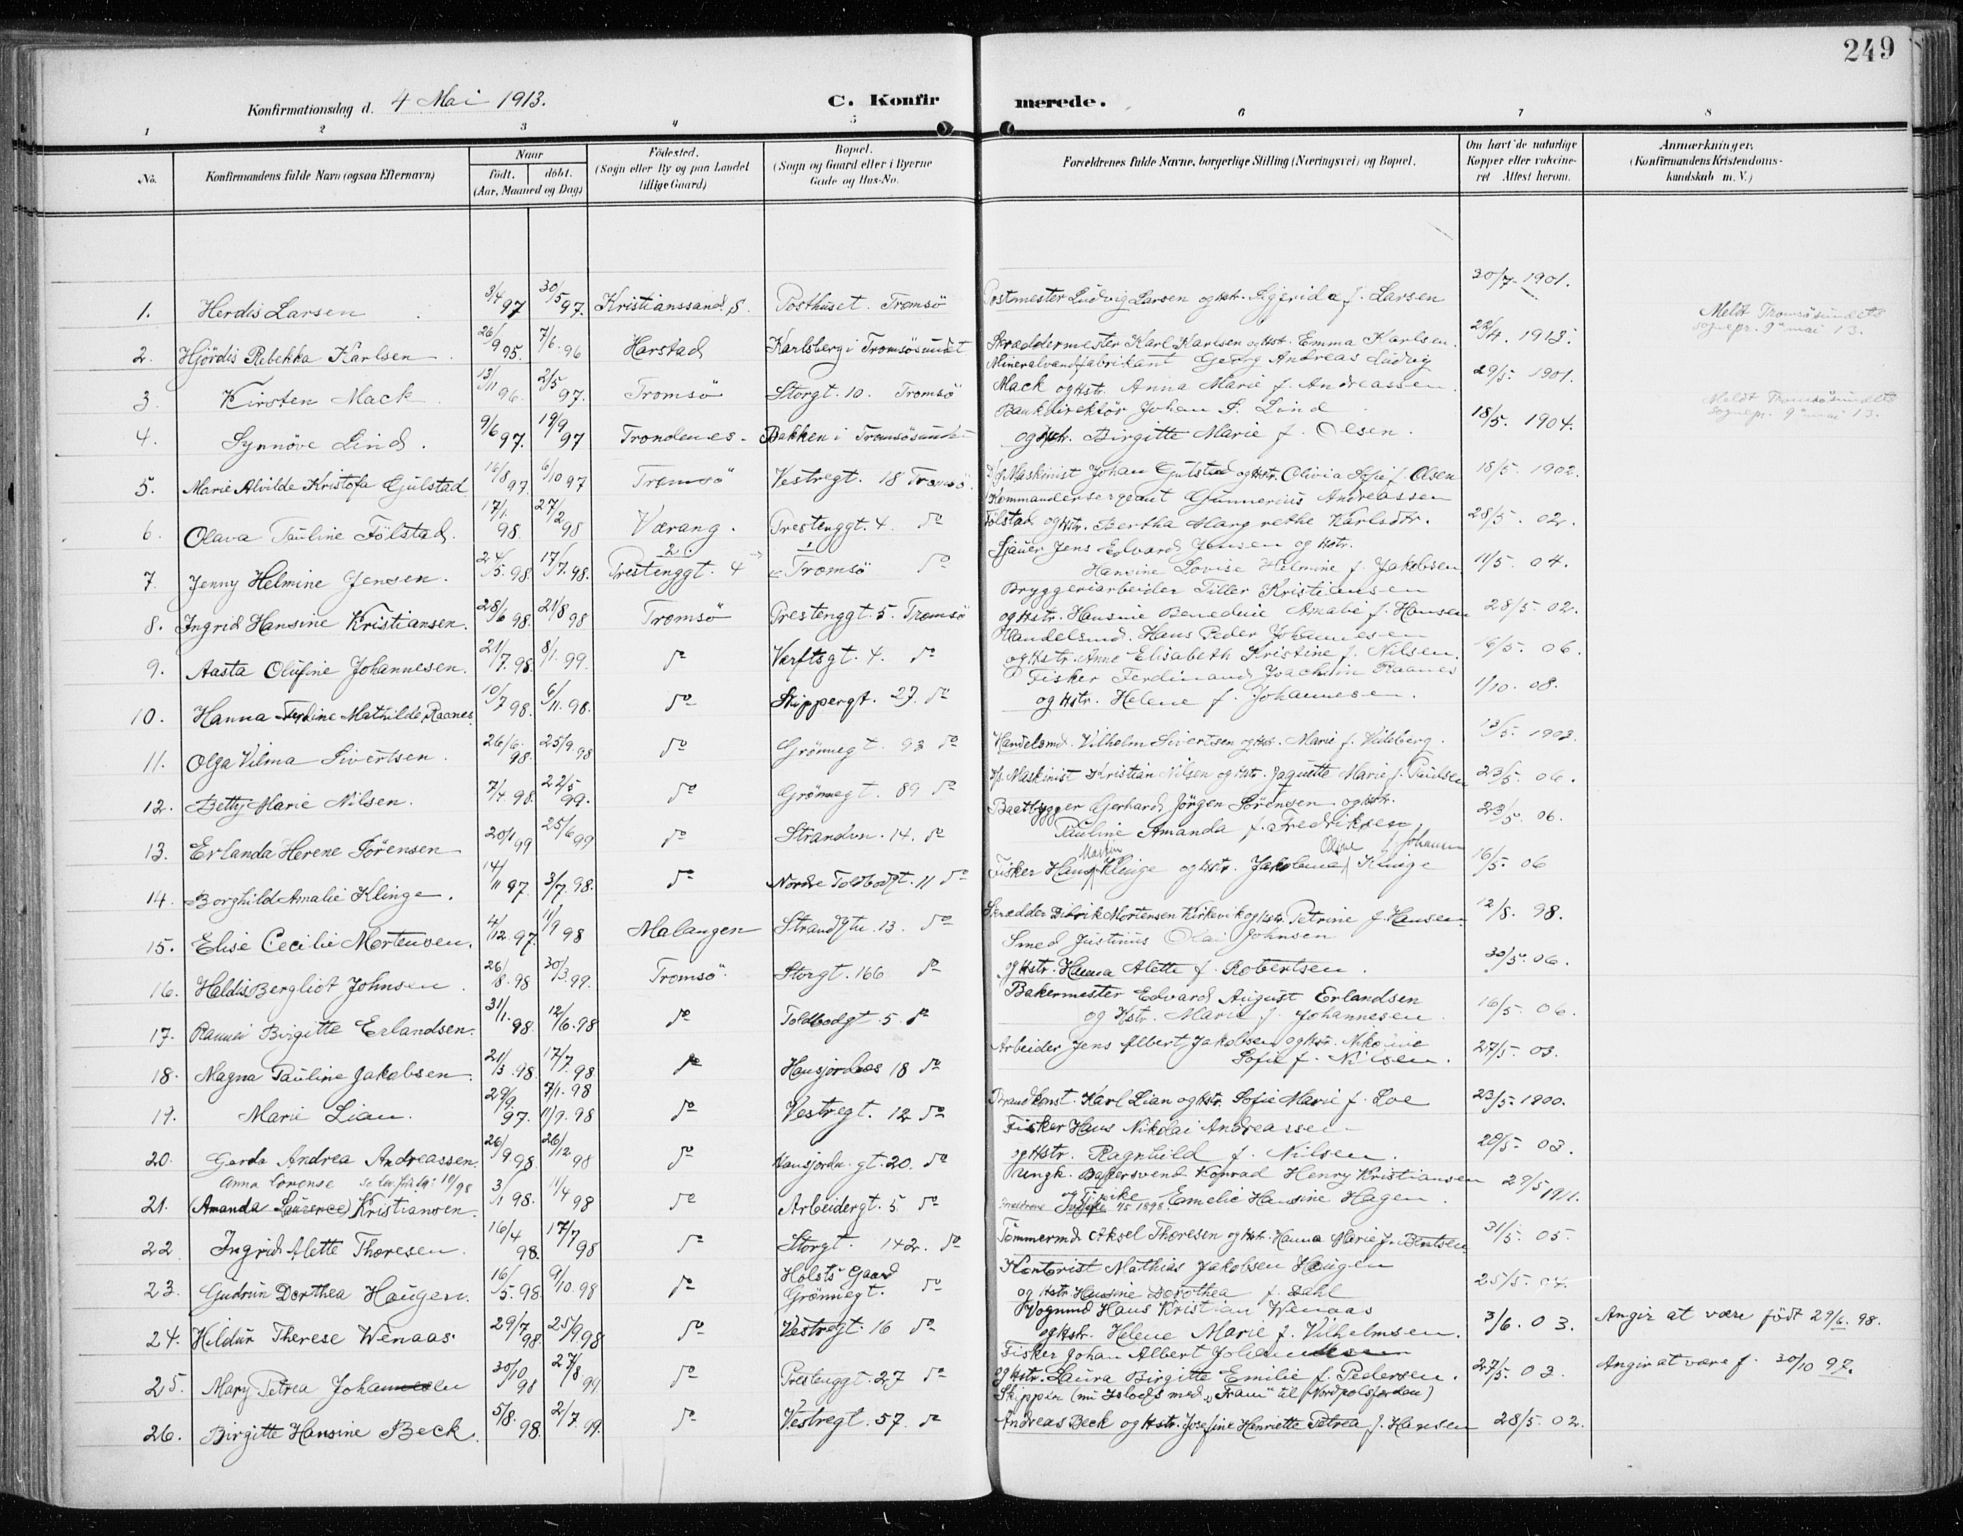 249
Konfirmationsdag d. 4 Mai 1913. C. Konfirmerede.
1 2 3 4 5 6 7 8
No. Konfirmandens fulde Navn (ogsaa Efternavn) Naar født. døbt. (Aar, Maaned og Dag) Fødested. (Sogn eller By og paa Landet tillige Gaard) Bopæl. (Sogn og Gaard eller i Byerne Gade og Hus-No. Forældrenes fulde Navne, borgerlige Stilling (Næringsvei) og Bopæl. Om havt de naturlige Kopper eller vaccineret Attest herom. Anmærkninger. (Konfirmandens Kristendomskundskab m. V.)
1. Herdis Larsen 3/4 97 30/5 97. Kristianssand S. Posthuset. Tromsö Postmester Ludvig Larsen og Hstr. f. Larsen 30/7. 1901.
2. Hjördis Rebekka Karlsen 26/9 95. 7/6. 96 Harstad Karlsberg i Tromsösundet Skræddermester Karl Karlsen og Hstr. Emma Karlsen. 22/4. 1913. Meldt Tromsösundets sognepr. 9de mai 13.
3 Kirsten Mack 13/11 96. 2/5 97. Tromsö Storgt. 10. Tromsö Mineralvandfabrikant Georg Andreas Ludvig
Mack og Hstr. Anna Marie f. Andreassen. 29/5. 1901.
4. Synnöve Lind. 9/6 97. 19/9 97 Trondenes. Bakken i Tromsösundet Bankdirektör Johan S. Lind
og Hstr. Birgitte Marie f. Olsen. 18/5. 1904. Meldt Tromsösundets sognepr. 9de mai 13.
5. Marie Alvilde Kristofa Gulstad 16/8 97. 6/10 97 Tromsö Vestregt. 18 Tromsö. Maskinist Johan Gulstad og Hstr. Olivia Sofie f. Olsen 18/5. 1902.
6. Olava Pauline Fölstad. 17/1. 98. 27/2 98 Værang. Prestenggt. 4. do Kommandersergeant Gunnerius Andreassen
Fölstad og Hstr. Bertha Margrethe Karlsdtr. 28/5. 02.
7. Jenny Helmine Jensen. 24/5. 98. 17/7. 98. Prestenggt. 4 Tromsö do Sjauer Jens Edvard Jensen og Hstr.
Hansine Lovise Helmine f. Jakobsen 11/5. 04.
8. Ingrid Hansine Kristiansen. 28/6 98. 21/8 98 Tromsö Prestenggt. 5. Tromsö Bryggeriarbeider Tiller Kristiansen
og Hstr. Hansine Amalie f. Hansen 28/5. 02.
9. Aasta Olufine Johannesen. 21/7. 98. 8/1. 99. do Værftsgt. 4. do Handelsmd. Hans Peder Johannesen
og Hstr. Anne Elisabeth Kristine f. Nilsen. 16/5. 06.
10. Hanna Mathilde Raanes. 10/7 98. 6/11. 98. do Skippergt. 27. do Fisker Ferdinand Joachim Raanes
og Hstr. Helene f. Johannesen. 1/10. 08.
11. Olga Vilma Sivertsen. 26/6. 98. 25/9 98 do Grönnegt. 93 do Handelsmd. Vilhelm Sivertsen og Hstr. Marie f. 13/5. 1903.
12. Betty Marie Nilsen. 7/4. 98. 22/5 99. do Grönnegt 89 do Maskinist Kristian Nilsen og Hstr. Jaquette Marie f. Paulsen 23/5. 06.
13. Erlanda Herene Sörensen 20/1 99 25/6 99 do Strandvn. 14. do Baatbygger Gerhard Jörgen Sörensen og Hstr.
Pauline Amanda f. Fredriksen. 23/5. 06.
14. Borghild Amalie Klinge. 14/11 97. 3/7. 98. do Nordre Toldbodgt. 11 do Fisker Hans Martin Klinge og Hstr. Jakobine Oline Klinge f. Johansen 16/5. 06
15. Elise Cecilie Mortensen. 4/12. 97. 11/9 98 Malangen Strandgtn. 13. do Skrædder Didrik Mortensen Kirkevik og Hstr. Petrine f. Hansen. 12/8. 98.
16. Haldis Bergliot Johnsen. 26/8. 98 30/3. 99. Tromsö. Storgt. 166 do Smed Justinus Olai Johnsen
og Hstr. Hanna Alette f. Robertsen. 30/5. 06.
17. Ranvei Birgitte Erlandsen. 31/1. 98. 12/6. 98 do Toldbodgt. 5. do Bakermester Edvard August Erlandsen
og Hstr. Marie f. Johannesen. 16/5. 06.
18. Magna Pauline Jakobsen. 21/3. 98. 17/7. 98 do Hansjordnes 18 do Arbeider Jens Albert Jakobsen og Hstr. Nikoline
Sofie f. Nilsen. 27/5. 03.
19. Marie Lian. 29/9. 97. 7/1. 98 11/9. 98 do Vestregt. 12 do Brandkonst. Karl Lian og Hstr. Sofie Marie f. Loe 23/5. 1900.
20. Gerda Andrea Andreassen. 26/9 98. 26/12. 98 do Hansjordn. gt. 20. do Fisker Hans Nikolai Andreassen
og Hstr. Ragnhild f. Nilsen. 20/5. 03.
21. Anna Lorense (Amanda Laurence) Kristiansen. 3/1 98. 11/4 98 do Arbeidergt. 5. do Ungk. Bakersvend Konrad Henry Kristiansen
og Pike Emelie Hansine Hagen. 29/5 1911.
22. Ingrid Alette Thoresen. 16/4 98. 17/7 98 do Storgt. 142. do Tömmermd Aksel Thoresen og Hstr. Hanna Marie f. Bentsen 31/5. 05.
23. Gudrun Dorthea Haugen. 16/5. 98. 9/10. 98 do Holsts Gaard Grönnegt. do Kontorist Mathias Jakobsen Haugen
og Hstr. Hansine Dorothea f. Dahl 25/5. 04.
24. Hildur Therese Wenaas. 29/7 98. 25/9. 98 do Vestregt. 16 do Vognmd Hans Kristian Wenaas
og Hstr. Helene Marie f. Vilhelmsen. 3/6. 03. Angir at være födt 29/6. 98.
25. Mary Petrea Johannesen 30/10 98 27/8 99 do Prestenggt. 27 do Fisker Johan Albert Johannesen
og Hstr. Laura Birgitte Emilie f. Pedersen. 27/5. 03. Angir at være f. 30/10 97.
26. Birgitte Hansine Beck. 5/8. 98. 2/7. 99. do Vestregt. 57. do Skipper (nu Islods med "Fram" til Nordpolsfærden)
Andreas Beck og Hstr. Josefine Henriette Petrea f. Hansen 28/5. 02.